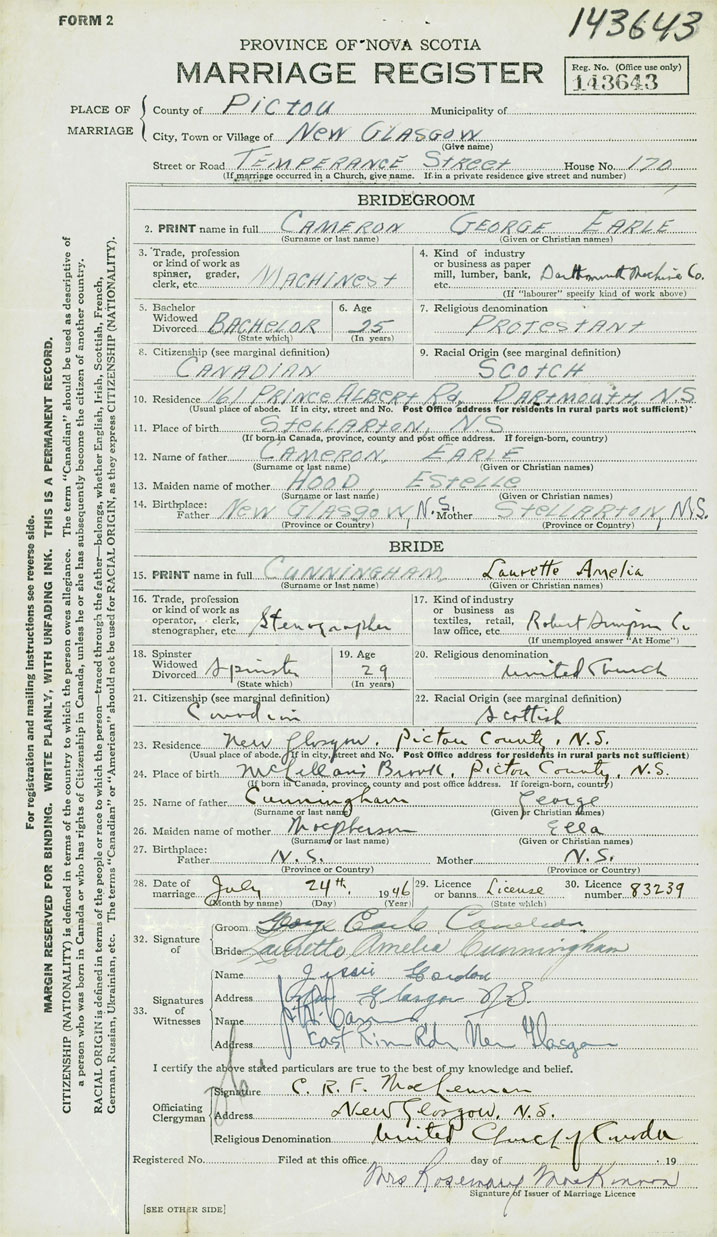 FORM 2
143643
PROVINCE OF NOVA SCOTIA
MARRIAGE REGISTER
Reg. No. (Office use only)
143643
PLACE OF MARRIAGE
County of Pictou Municipality of
City, Town or Village of New Glasgow
(Give name)
Street or Road Temperance Street House No. 170
(If marriage occurred in a Church, give name. If in a private residence give street and number)
BRIDEGROOM
2. PRINT name in full CAMERON GEORGE EARLE
(Surname or last name) (Given or Christian names)
3. Trade, profession or kind of work as spinner, grader, clerk, etc. MACHINEST
4. Kind of industry or business as paper mill, lumber, bank, etc. Dartmouth Machine Co.
(If "labourer" specify kind of work above)
5. Bachelor Widowed Divorced BACHELOR
(State which)
6. Age 25
(In years)
7. Religious denomination
PROTESTANT
8. Citizenship (see marginal definition)
CANADIAN
9. Racial Origin (see marginal definition)
SCOTCH
10. Residence 161 PRINCE ALBERT Rd, DARTMOUTH, N.S
(Usual place of abode. If in city, street and No. Post Office address for residents in rural parts not sufficient)
11. Place of birth STELLARTON, NS
(If born in Canada, province, county and post office address. If foreign-born, country)
12. Name of father CAMERON, EARLE
(Surname or last name) (Given or Christian names)
13. Maiden name of mother HOOD, Estelle
(Surname or last name) (Given or Christian names)
14. Birthplace: Father New Glasgow, N.S. Mother STELLARTON, N.S.
(Province or Country) (Province or Country)
BRIDE
15. PRINT name in full CUNNINGHAM, Laurette Amelia
(Surname or last name) (Given or Christian names)
16. Trade, profession or kind of work as operator, clerk, stenographer, etc. Stenographer
17. Kind of industry or business as textiles, retail, law office, etc. Robert Simpson Co
(If unemployed answer "At Home")
18. Spinster Widowed Divorced Spinster
(State which)
19. Age 29
(In years)
20. Religious denomination
United Church
21. Citizenship (see marginal definition)
Canadian
22. Racial Origin (see marginal definition)
Scottish
23. Residence New Glasgow, Pictou County, N.S.
(Usual place of abode. If in city, street and No. Post Office address for residents in rural parts not sufficient)
24. Place of birth McLellans Brook, Pictou County, N.S.
(If born in Canada, province, county and post office address. If foreign-born, country)
25. Name of father Cunningham George
(Surname or last name) (Given or Christian names)
26. Maiden name of mother Macpherson Ella
(Surname or last name) (Given or Christian names)
27. Birthplace: Father N.S. Mother N.S.
(Province or Country) (Province or Country)
28. Date of marriage July 24th, 1946
(Month by name) (Day) (Year)
29. Licence or banns License
(State which)
30. Licence number 83239
32. Signature of
Groom George Earle Cameron
Bride Laurette Amelia Cunningham
33. Signatures of Witnesses
Name Jessie Gordon
Address New Glasgow N.S.
Name
Address East River Rd. New Glasgow
I certify the above stated particulars are true to the best of my knowledge and belief.
Officiating Clergyman
Signature C. R. F. MacLennan
Address New Glasgow, N.S.
Religious Denomination United Church of Canada
Registered No. Filed at this office day of 19
Mrs Rosemary MacKinnon
Signature of Issuer of Marriage Licence
[SEE OTHER SIDE]
For registration and mailing instructions see reverse side.
MARGIN RESERVED FOR BINDING. WRITE PLAINLY, WITH UNFADING INK. THIS IS A PERMANENT RECORD.
CITIZENSHIP (NATIONALITY) is defined in terms of the country to which the person owes allegiance. The term "Canadian" should be used as descriptive of
a person who was born in Canada or who has rights of Citizenship in Canada, unless he or she has subsequently become the citizen of another country.
RACIAL ORIGIN is defined in terms of the people or race to which the person—traced through the father—belongs, whether English, Irish, Scottish, French,
German, Russian, Ukrainian, etc. The terms "Canadian" or "American" should not be used for RACIAL ORIGIN, as they express CITIZENSHIP (NATIONALITY).